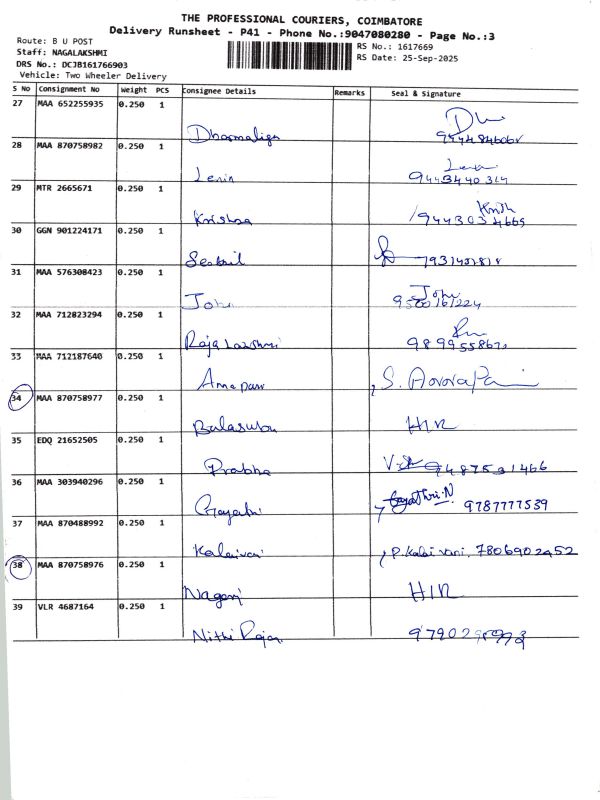 THE PROFESSIONAL COURIERS, COIMBATORE
Delivery Runsheet - P41 - Phone No.:9047080280 - Page No.:3
Route: B U POST
Staff: NAGALAKSHMI
DRS No.: DCJB161766903
Vehicle: Two Wheeler Delivery
RS No.: 1617669
RS Date: 25-Sep-2025
S No Consignment No Weight PCS Consignee Details Remarks Seal & Signature
27 MAA 652255935 0.250 1
28 MAA 870758982 0.250 1
Lenin 9443440314
29 MTR 2665671 0.250 1
Krishna 9443034665
30 GGN 901224171 0.250 1
31 MAA 576308423 0.250 1
John John
32 MAA 712823294 0.250 1
Raja Laxshmi
33 MAA 712187640 0.250 1
34 MAA 870758977 0.250 1
Balasubu
35 EDQ 21652505 0.250 1
Prabha 9487531466
36 MAA 303940296 0.250 1
Gayatri Gayathri.N 9787777539
37 MAA 870488992 0.250 1
Kalaivani P.Kalaivani. 7806902452
38 MAA 870758976 0.250 1
39 VLR 4687164 0.250 1
Nithi Rajan